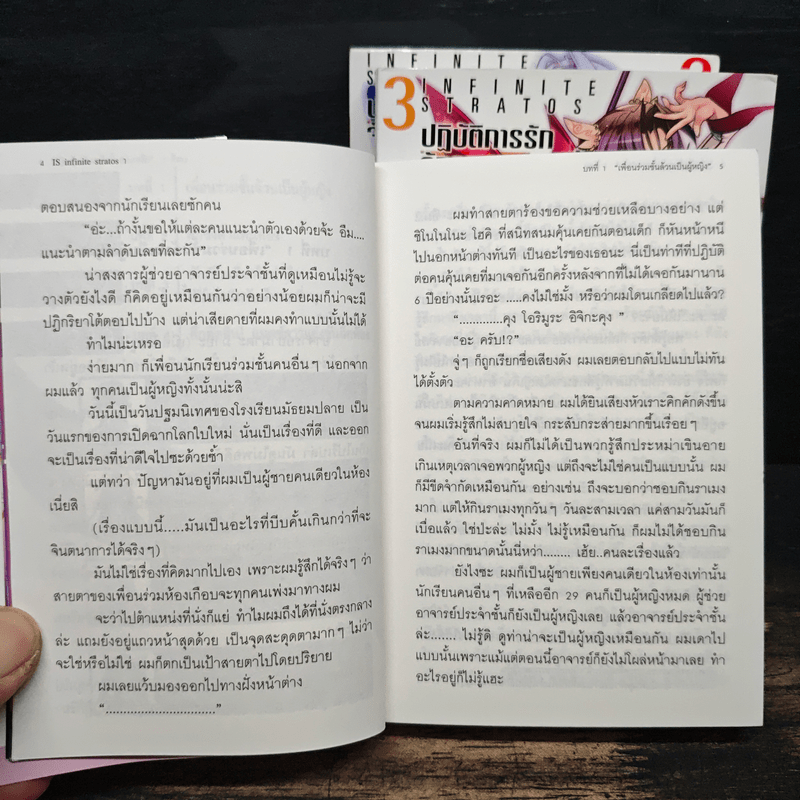 INFINITE
S
2
3
INFINITE
STRATOS
ปฏิบัติการรัก
4 IS infinite stratos 1
ตอบสนองจากนักเรียนเลยซักคน
“อ่ะ...ถ้างั้นขอให้แต่ละคนแนะนำตัวเองด้วยจ้ะ อืม....
แนะนำตามลำดับเลขที่ละกัน”
น่าสงสารผู้ช่วยอาจารย์ประจำชั้นที่ดูเหมือนไม่รู้จะ
วางตัวยังไงดี ก็คิดอยู่เหมือนกันว่าอย่างน้อยผมก็น่าจะมี
ปฏิกริยาโต้ตอบไปบ้าง แต่น่าเสียดายที่ผมคงทำแบบนั้นไม่ได้
ทำไมน่ะเหรอ
ง่ายมาก ก็เพื่อนนักเรียนร่วมชั้นคนอื่นๆ นอกจาก
ผมแล้ว ทุกคนเป็นผู้หญิงทั้งนั้นน่ะสิ
วันนี้เป็นวันปฐมนิเทศของโรงเรียนมัธยมปลาย เป็น
วันแรกของการเปิดฉากโลกใบใหม่ นั่นเป็นเรื่องที่ดี และออก
จะเป็นเรื่องที่น่าดีใจไปซะด้วยซ้ำ
แต่ทว่า ปัญหามันอยู่ที่ผมเป็นผู้ชายคนเดียวในห้อง
เนี่ยสิ
(เรื่องแบบนี้.....มันเป็นอะไรที่บีบคั้นเกินกว่าที่จะ
จินตนาการได้จริงๆ)
มันไม่ใช่เรื่องที่คิดมากไปเอง เพราะผมรู้สึกได้จริงๆ ว่า
สายตาของเพื่อนร่วมห้องเกือบจะทุกคนเพ่งมาทางผม
จะว่าไปตำแหน่งที่นั่งก็แย่ ทำไมผมถึงได้ที่นั่งตรงกลาง
ล่ะ แถมยังอยู่แถวหน้าสุดด้วย เป็นจุดสะดุดตามากๆ ไม่ว่า
จะใช่หรือไม่ใช่ ผมก็ตกเป็นเป้าสายตาไปโดยปริยาย
ผมเลยแว้บมองออกไปทางฝั่งหน้าต่าง
“..............................”
บทที่ 1 “เพื่อนร่วมชั้นล้วนเป็นผู้หญิง” 5
ผมทำสายตาร้องขอความช่วยเหลือบางอย่าง แต่
ชิโนโนโนะ โฮคิ ที่สนิทสนมคุ้นเคยกันตอนเด็ก ก็หันหน้าหนี
ไปนอกหน้าต่างทันที เป็นอะไรของเธอนะ นี่เป็นท่าทีที่ปฏิบัติ
ต่อคนคุ้นเคยที่มาเจอกันอีกครั้งหลังจากที่ไม่ได้เจอกันมานาน
6 ปีอย่างนั้นเรอะ .....คงไม่ใช่มั้ง หรือว่าผมโดนเกลียดไปแล้ว?
“.............คุง โอริมูระ อิจิกะคุง ”
“อะ ครับ!?”
จู่ๆ ก็ถูกเรียกชื่อเสียงดัง ผมเลยตอบกลับไปแบบไม่ทัน
ได้ตั้งตัว
ตามความคาดหมาย ผมได้ยินเสียงหัวเราะคิกคักดังขึ้น
จนผมเริ่มรู้สึกไม่สบายใจ กระสับกระส่ายมากขึ้นเรื่อยๆ
อันที่จริง ผมก็ไม่ได้เป็นพวกรู้สึกประหม่าเขินอาย
เกินเหตุเวลาเจอพวกผู้หญิง แต่ถึงจะไม่ใช่คนเป็นแบบนั้น ผม
ก็มีขีดจำกัดเหมือนกัน อย่างเช่น ถึงจะบอกว่าชอบกินราเมง
มาก แต่ให้กินราเมงทุกวันๆ วันละสามเวลา แค่สามวันมันก็
เบื่อแล้ว ใช่ปะล่ะ ไม่มั้ง ไม่รู้เหมือนกัน ก็ผมไม่ได้ชอบกิน
ราเมงมากขนาดนั้นนี่หว่า........ เฮ้ย..คนละเรื่องแล้ว
ยังไงซะ ผมก็เป็นผู้ชายเพียงคนเดียวในห้องเท่านั้น
นักเรียนคนอื่นๆ ที่เหลืออีก 29 คนก็เป็นผู้หญิงหมด ผู้ช่วย
อาจารย์ประจำชั้นก็ยังเป็นผู้หญิงเลย แล้วอาจารย์ประจำชั้น
ล่ะ....... ไม่รู้ดิ ดูท่าน่าจะเป็นผู้หญิงเหมือนกัน ผมเดาไป
แบบนั้นเพราะแม้แต่ตอนนี้อาจารย์ก็ยังไม่โผล่หน้ามาเลย ทำ
อะไรอยู่ก็ไม่รู้แฮะ